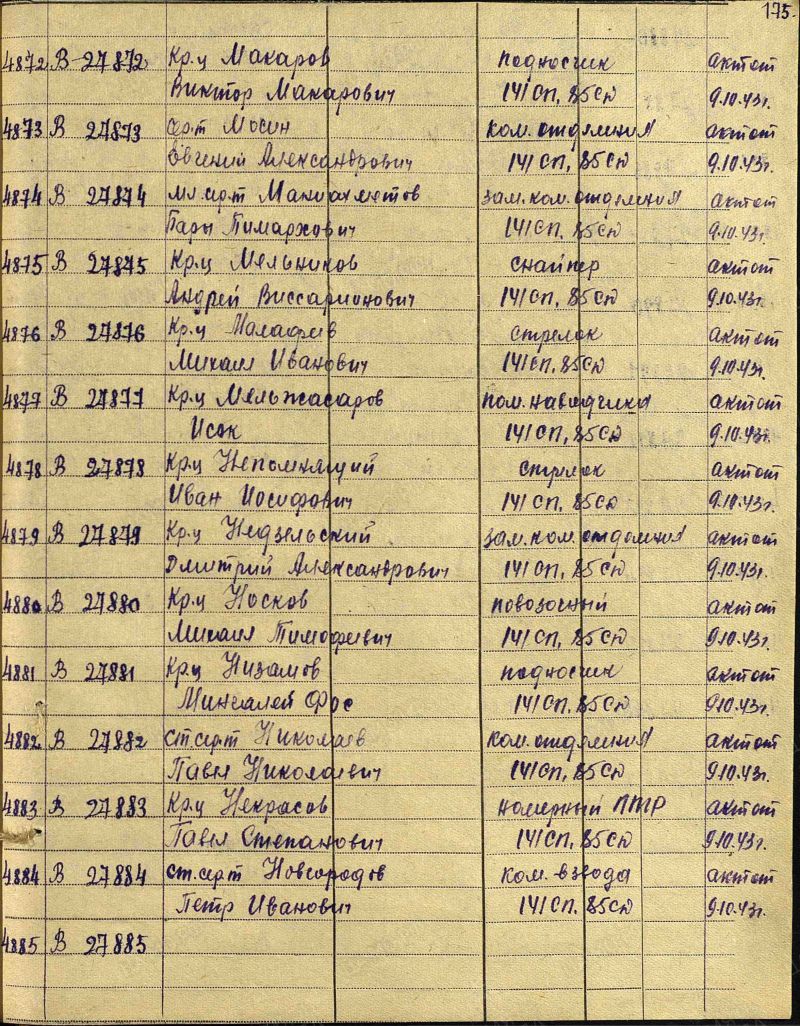 175.
4872 В 27872 Кр.ц Макаров подносчик акт от
Виктор Макарович 141 СП, 85 СД 9.10.43г.
4873 В 27873 Серт Мосин ком. отделения акт от
Евгений Александрович 141 СП, 85 СД 9.10.43г.
4874 В 27874 мл серт зам. ком. отделения акт от
141 СП, 85 СД 9.10.43г.
4875 В 27875 Кр.ц Мельников снайпер акт от
Андрей Виссарионович 141 СП, 85 СД 9.10.43г.
4876 В 27876 Кр.ц Малафеев стрелок акт от
Михаил Иванович 141 СП, 85 СД 9.10.43г.
4877 В 27877 Кр.ц Мельжасаров пом. наводчика акт от
Исак 141 СП, 85 СД 9.10.43г.
4878 В 27878 Кр.ц Непомнящий стрелок акт от
Иван Иосифович 141 СП, 85 СД 9.10.43г.
4879 В 27879 Кр.ц Недзельский зам. ком. отделения акт от
Дмитрий Александрович 141 СП, 85 СД 9.10.43г.
4880 В 27880 Кр.ц Носков повозочный акт от
Михаил Тимофеевич 141 СП, 85 СД 9.10.43г.
4881 В 27881 Кр.ц Низамов подносчик акт от
Мингалей Фос 141 СП, 85 СД 9.10.43г.
4882 В 27882 ст. серт Николаев ком. отделения акт от
Павел Николаевич 141 СП, 85 СД 9.10.43г.
4883 В 27883 Кр.ц Некрасов номерный ПТР акт от
Павел Степанович 141 СП, 85 СД 9.10.43г.
4884 В 27884 ст. серт Новгородов ком. взвода акт от
Петр Иванович 141 СП. 85 СД 9.10.43г.
4885 В 27885